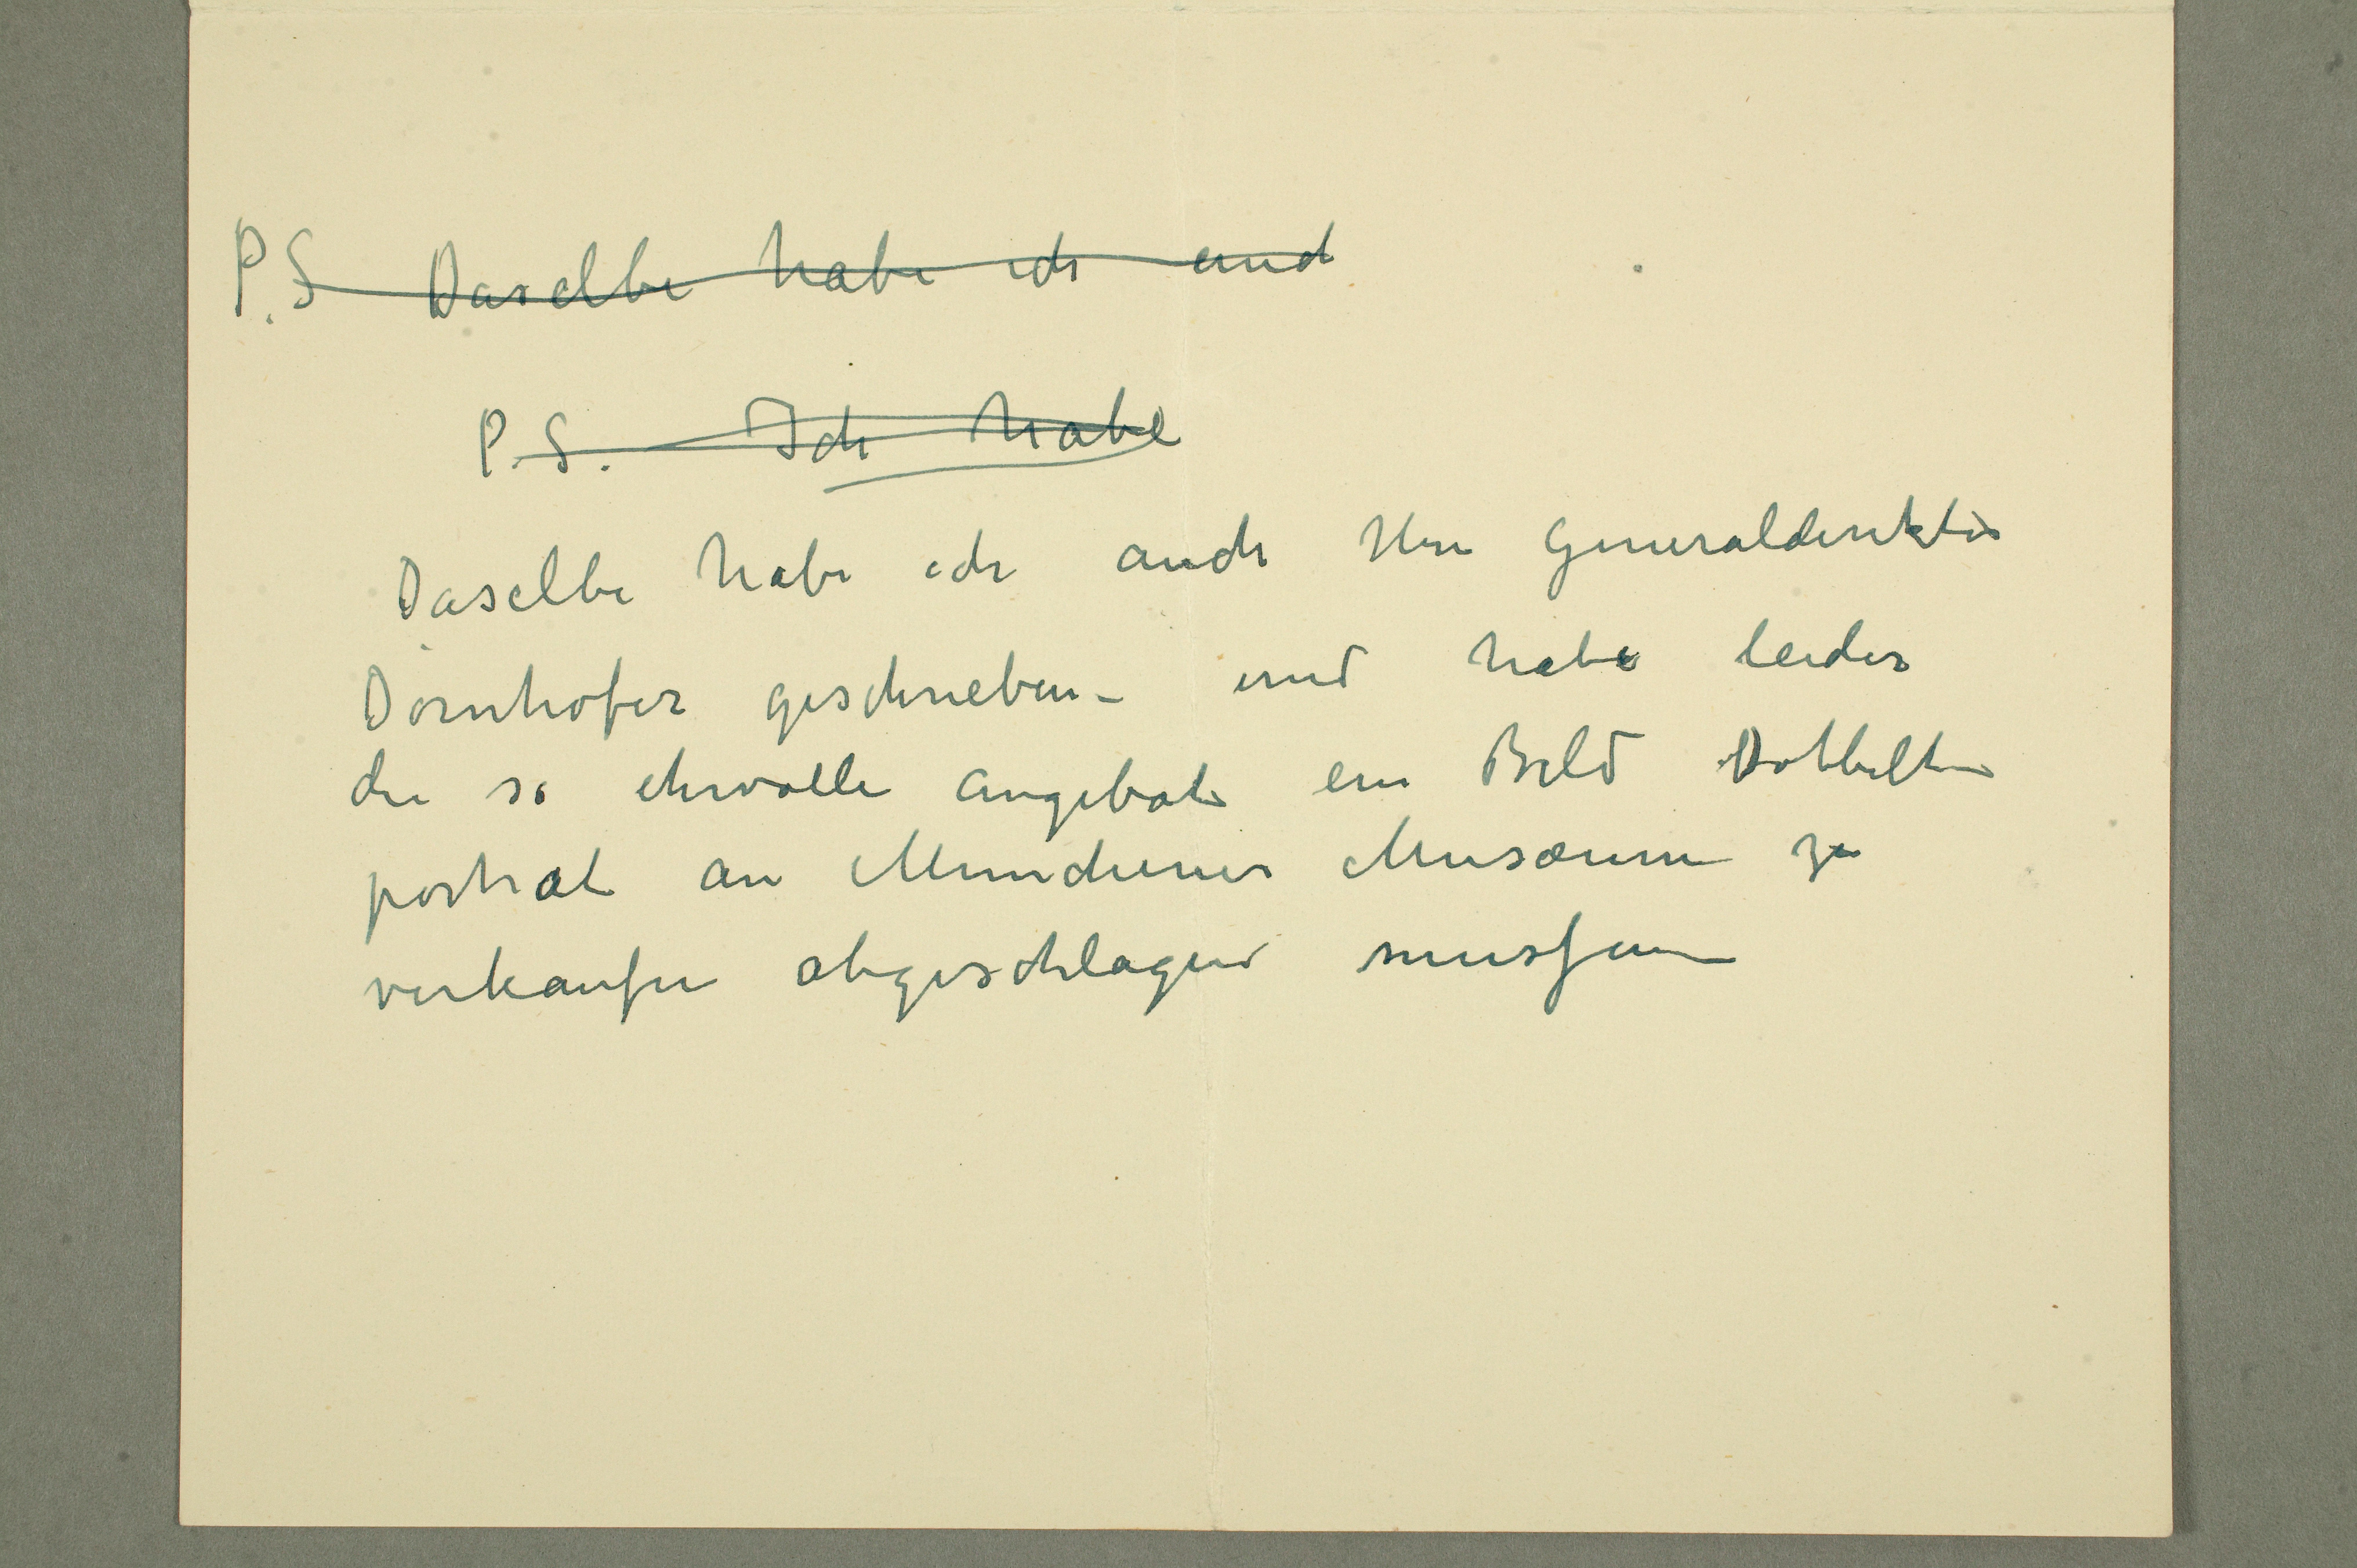 P.S Daselbe habe ich auc
P.S. Ich habe
Daselbe habe ich auch Herr Generaldirektor
Dörnhöfer geschrieben – und habe leider
die so ehrvolle angebot ein Bild Dobbelt
porträt an Münchener Musæum zu
verkaufen abgeschlagen mussen